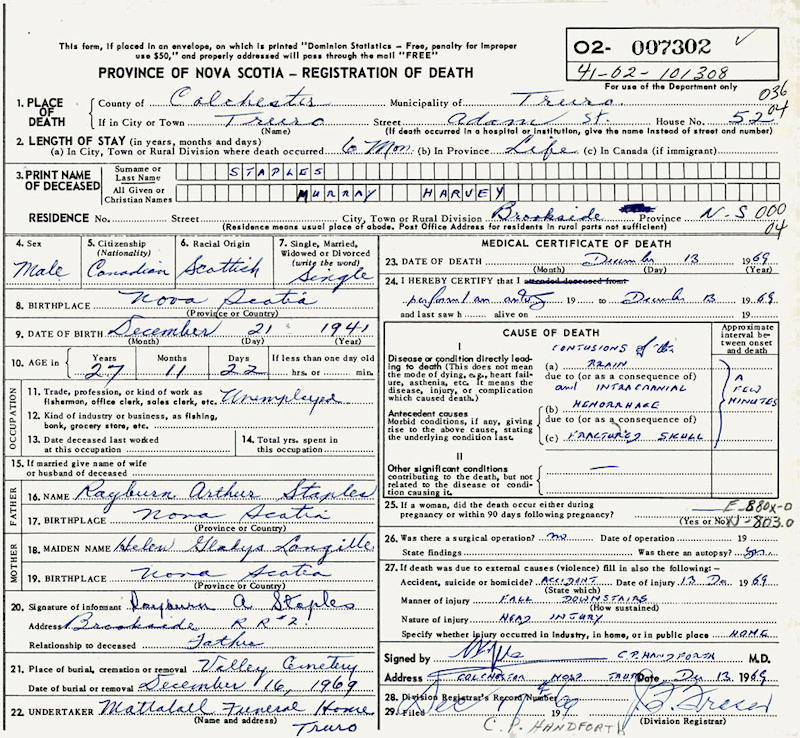 This form, if placed in an envelope, on which is printed "Dominion Statistics – Free, penalty for improper
use $50," and properly addressed will pass through the mail "FREE"
PROVINCE OF NOVA SCOTIA – REGISTRATION OF DEATH
02- 007302 ✓
41-02-101308
For use of the Department only
036
04
1. PLACE OF DEATH County of Colchester Municipality of Truro
If in City or Town Truro Street Adam St. House No. 52
(Name) (If death occurred in a hospital or institution, give the name instead of street and number)
2. LENGTH OF STAY (in years, months and days)
(a) In City, Town or Rural Division where death occurred 6 Mon. (b) In Province Life (c) In Canada (if immigrant)
3. PRINT NAME OF DECEASED
Surname or Last Name STAPLES
All Given or Christian Names MURRAY HARVEY
RESIDENCE No. Street City, Town or Rural Division Brookside Province N-S 000
04
(Residence means usual place of abode. Post Office Address for residents in rural parts not sufficient)
4. Sex Male
5. Citizenship (Nationality) Canadian
6. Racial Origin Scottish
7. Single, Married, Widowed or Divorced (write the word) Single
8. BIRTHPLACE Nova Scotia
(Province or Country)
9. DATE OF BIRTH December 21 1941
(Month) (Day) (Year)
10. AGE in Years 27 Months 11 Days 22 If less than one day old hrs. or min.
OCCUPATION
11. Trade, profession, or kind of work as fisherman, office clerk, sales clerk, etc. Unemployed
12. Kind of industry or business, as fishing, bank, grocery store, etc.
13. Date deceased last worked at this occupation
14. Total yrs. spent in this occupation
15. If married give name of wife or husband of deceased
FATHER
16. NAME Rayburn Arthur Staples
17. BIRTHPLACE Nova Scotia
(Province or Country)
MOTHER
18. MAIDEN NAME Helen Gladys Langille
19. BIRTHPLACE Nova Scotia
(Province or Country)
20. Signature of informant Rayburn A Staples
Address Brookside RR#2
Relationship to deceased Father
21. Place of burial, cremation or removal Valley Cemetery
Date of burial or removal December 16, 1969
22. UNDERTAKER Mattatall Funeral Home
(Name and address) Truro
MEDICAL CERTIFICATE OF DEATH
23. DATE OF DEATH December 13 1969
(Month) (Day) (Year)
24. I HEREBY CERTIFY that I attended deceased from
perform an 19 to December 13 1969
and last saw h alive on 19
CAUSE OF DEATH
Approximate interval between onset and death
I
Disease or condition directly leading to death (This does not mean the mode of dying, e.g., heart failure, asthenia, etc. It means the disease, injury, or complication which caused death.)
CONTUSIONS of the
(a) BRAIN
due to (or as a consequence of)
and INTRACRANIAL
(b) HEMORRHAGE
due to (or as a consequence of)
(c) FRACTURED SKULL
A FEW MINUTES
Antecedent causes
Morbid conditions, if any, giving rise to the above cause, stating the underlying condition last.
II
Other significant conditions
contributing to the death, but not related to the disease or condition causing it.
—
25. If a woman, did the death occur either during pregnancy or within 90 days following pregnancy?
(Yes or No)
E-880X-0
N-803.0
26. Was there a surgical operation? no Date of operation 19
State findings Was there an autopsy? yes
27. If death was due to external causes (violence) fill in also the following:–
Accident, suicide or homicide? ACCIDENT Date of injury 13 De 1969
(State which)
Manner of injury FALL DOWNSTAIRS
(How sustained)
Nature of injury HEAD INJURY
Specify whether injury occurred in industry, in home, or in public place HOME
Signed by C.P. HANDFORTH M.D.
Address COLCHESTER HOSP TRURO Date De 13 1969
28. Division Registrar's Record Number
29. Filed Dec 19
(Division Registrar)
C. P. HANDFORTH